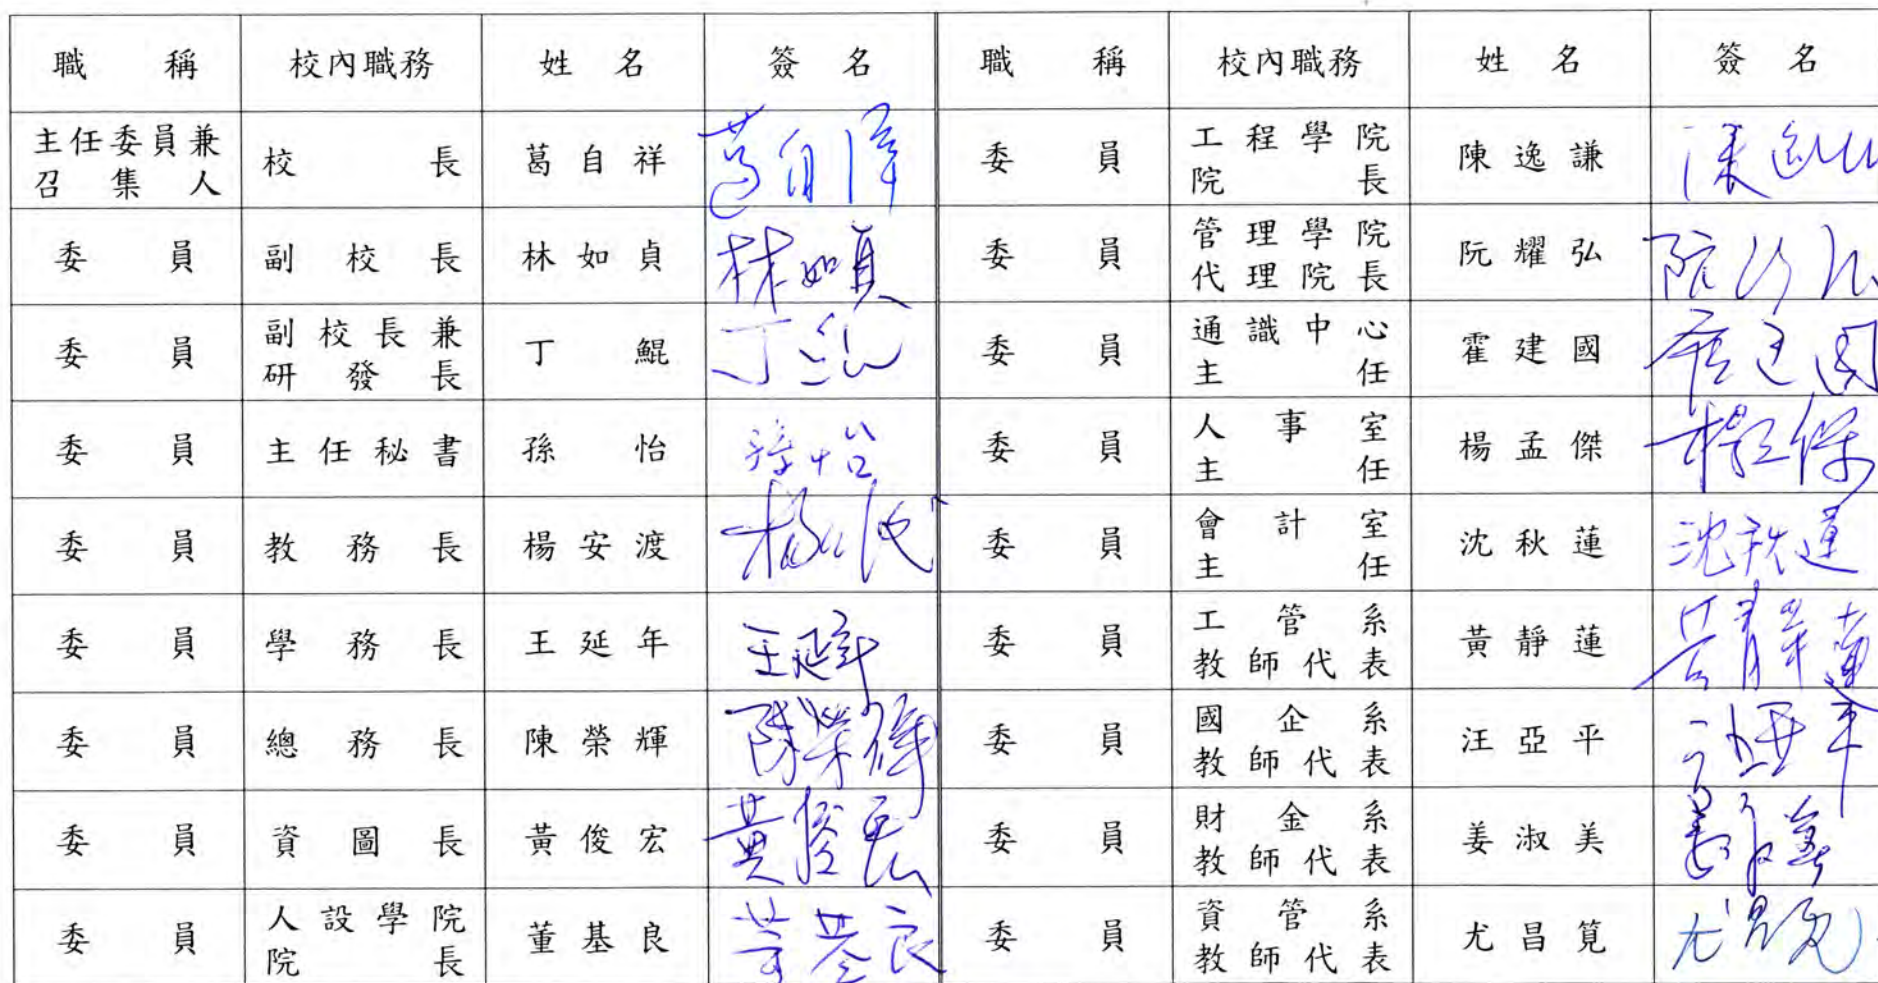 職稱 校內職務 姓名 簽名 職稱 校內職務 姓名 簽名
主任委員兼召集人 校長 葛自祥 葛自祥 委員 工程學院院長 陳逸謙
委員 副校長 林如貞 林如貞 委員 管理學院代理院長 阮耀弘
委員 副校長兼研發長 丁鯤 委員 通識中心主任 霍建國
委員 主任秘書 孫怡 孫怡 委員 人事室主任 楊孟傑
委員 教務長 楊安渡 委員 會計室主任 沈秋蓮 沈秋蓮
委員 學務長 王延年 王延年 委員 工管系教師代表 黃靜蓮
委員 總務長 陳榮輝 陳榮輝 委員 國企系教師代表 汪亞平 汪亞平
委員 資圖長 黃俊宏 黃俊宏 委員 財金系教師代表 姜淑美
委員 人設學院院長 董基良 董基良 委員 資管系教師代表 尤昌筧 尤昌筧